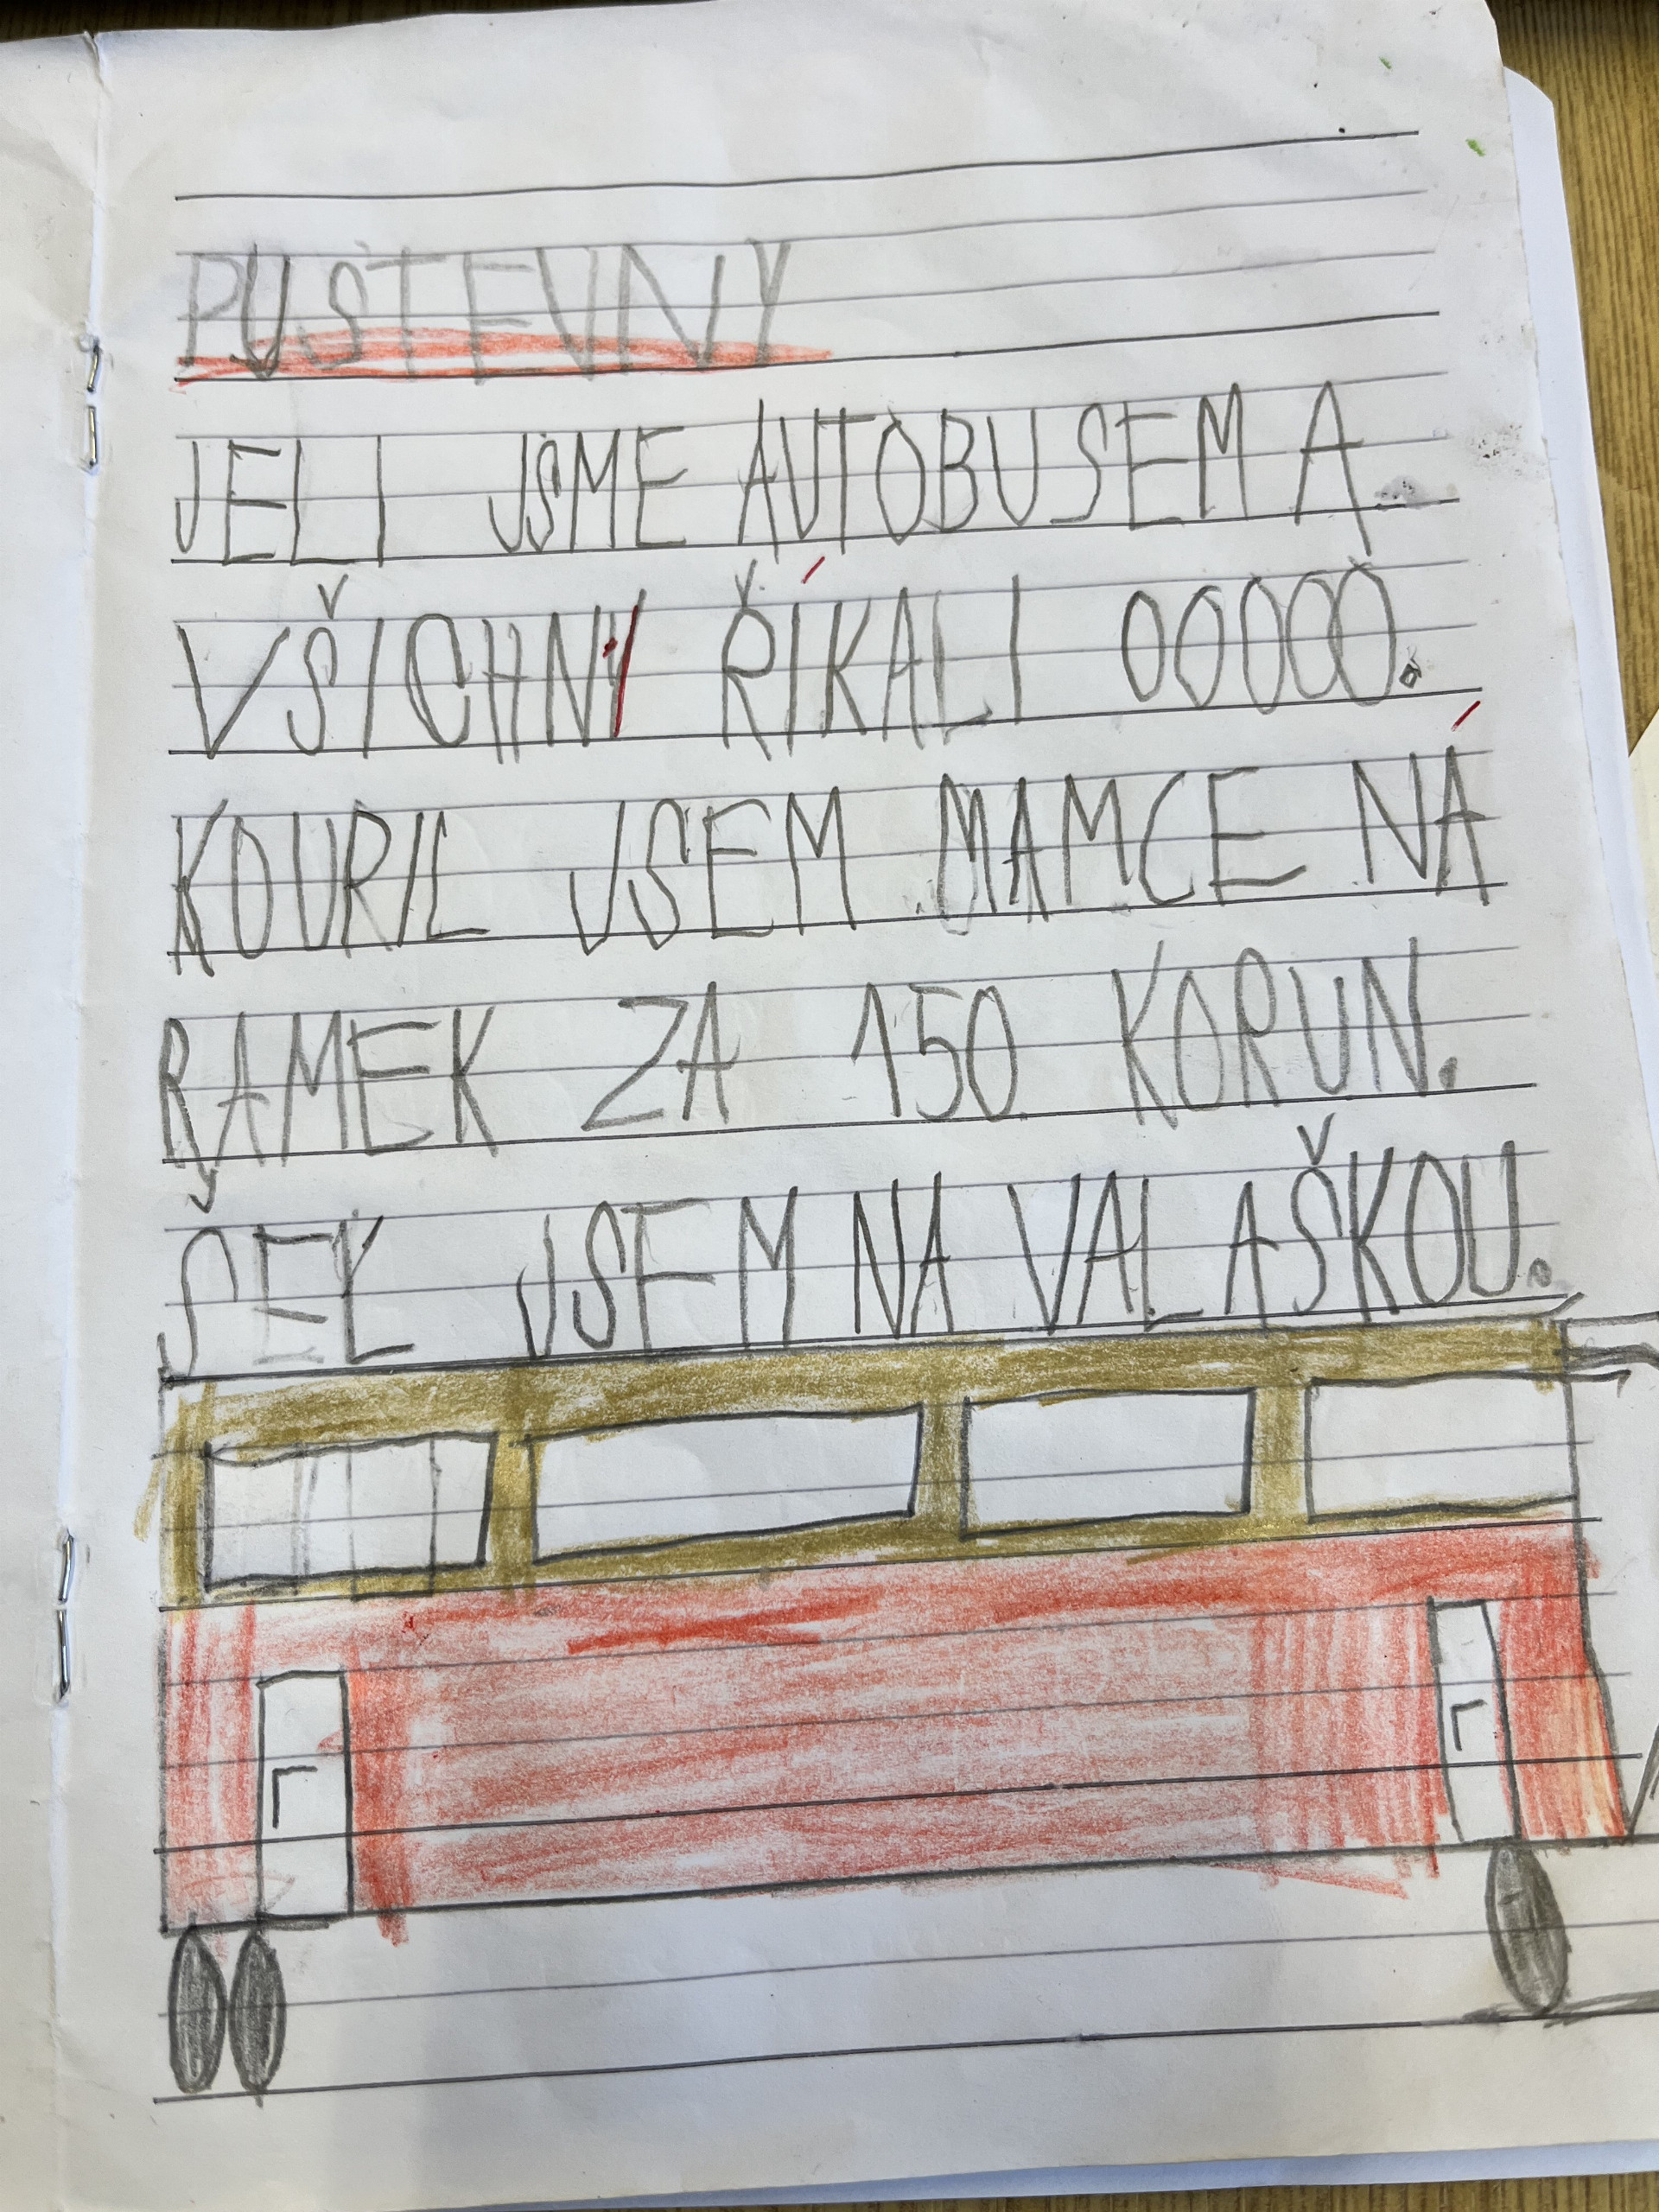 PUSTEVNY
JELI JSME AUTOBUSEM A
VŠICHNI ŘÍKALI OOOOO.
KOURIL JSEM MAMCE NÁ
RAMEK ZA 150 KORUN.
ŠEL JSEM NA VALAŠKOU.